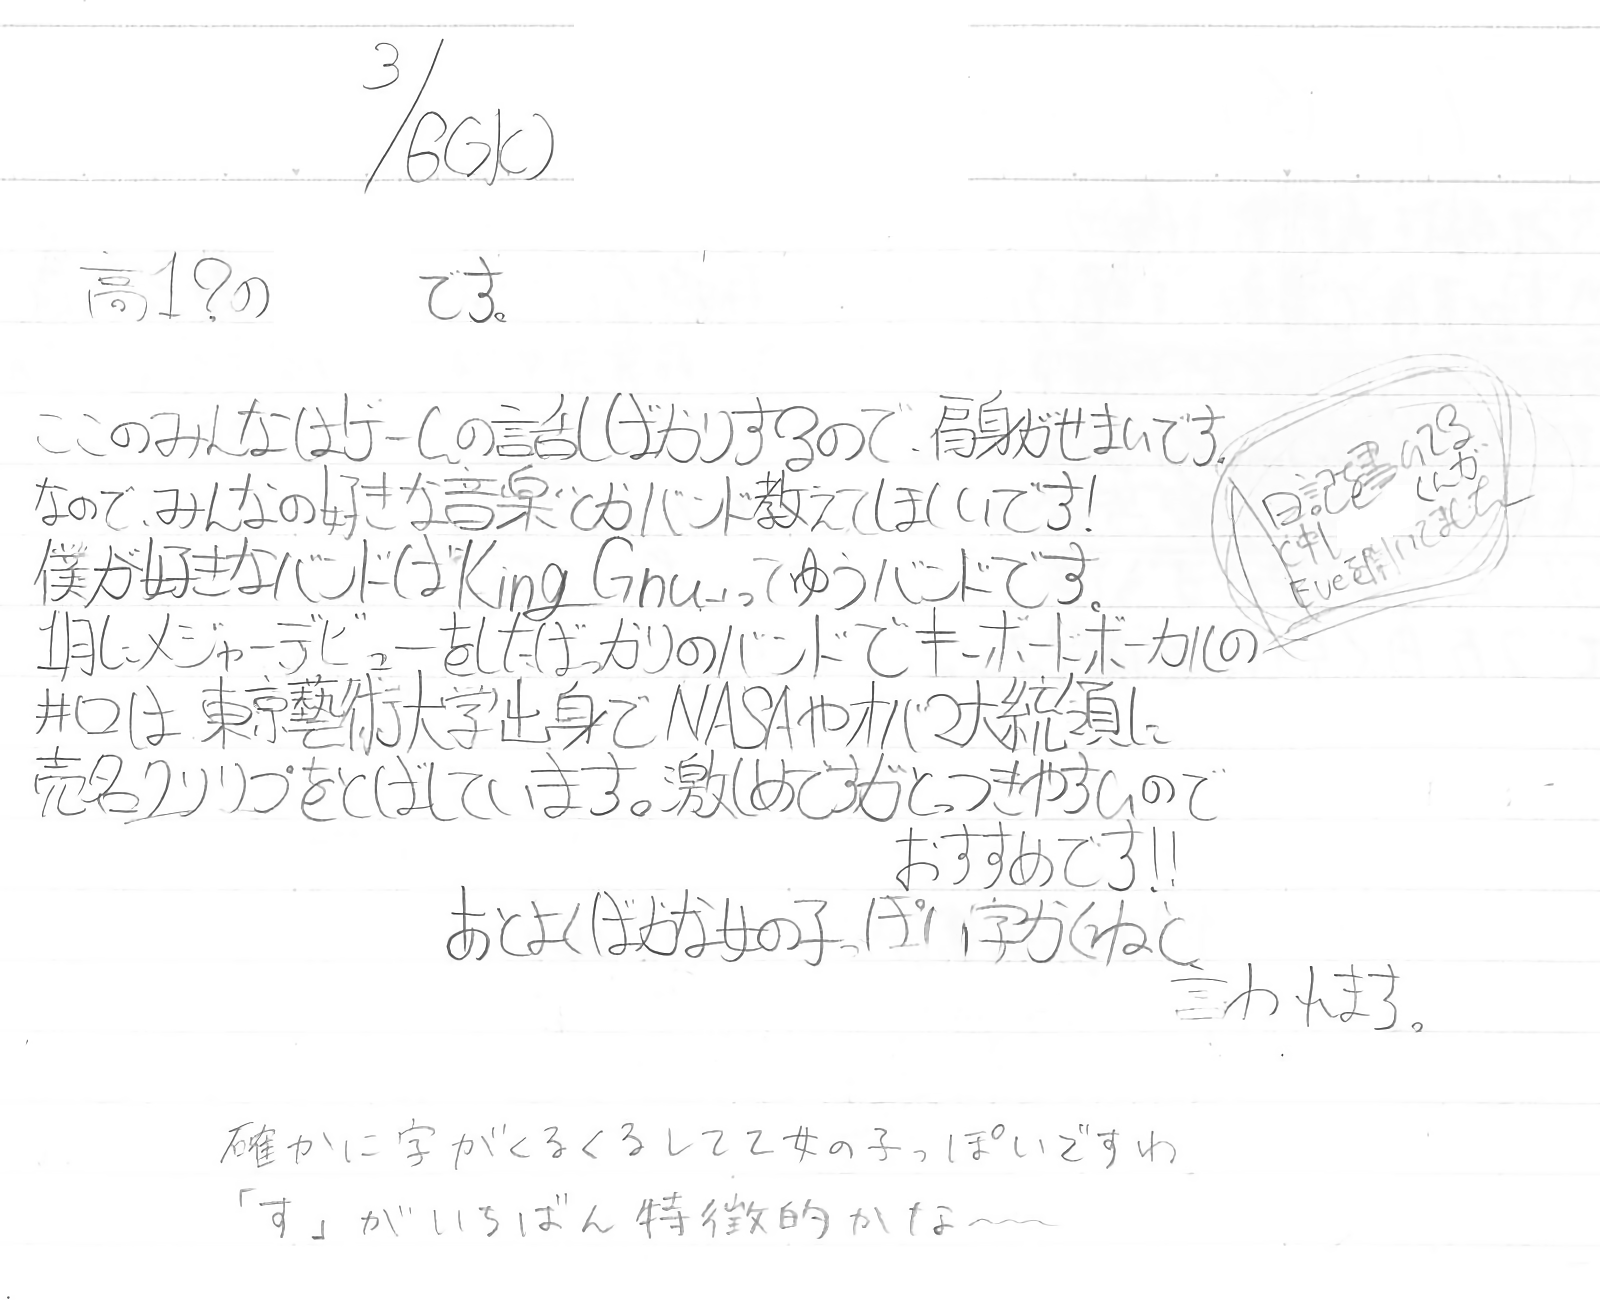 3/6(水)
高1?の　　です。
ここのみんなはゲームの話しばかりするので、肩身がせまいです。
なので、みんなの好きな音楽とかバンド教えてほしいです!
僕が好きなバンドは"King Gnu"ってゆうバンドです。
1月にメジャーデビューをしたばっかりのバンドでキーボードボーカルの
井口は東京藝術大学出身でNASAやオバマ大統領に
売名クソリプをとばしています。激しめですがとっつきやすいので
おすすめです!!
あとよくばかな女の子っぽい字かくねと
言われます。
日記を書いてる
くんが
Eveを聞いてました
確かに字がくるくるしてて女の子っぽいですね
「す」がいちばん特徴的かな〜〜